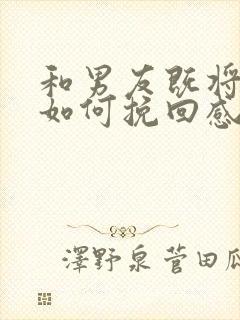 和男友既将
如何挽回感
澤野泉 菅田